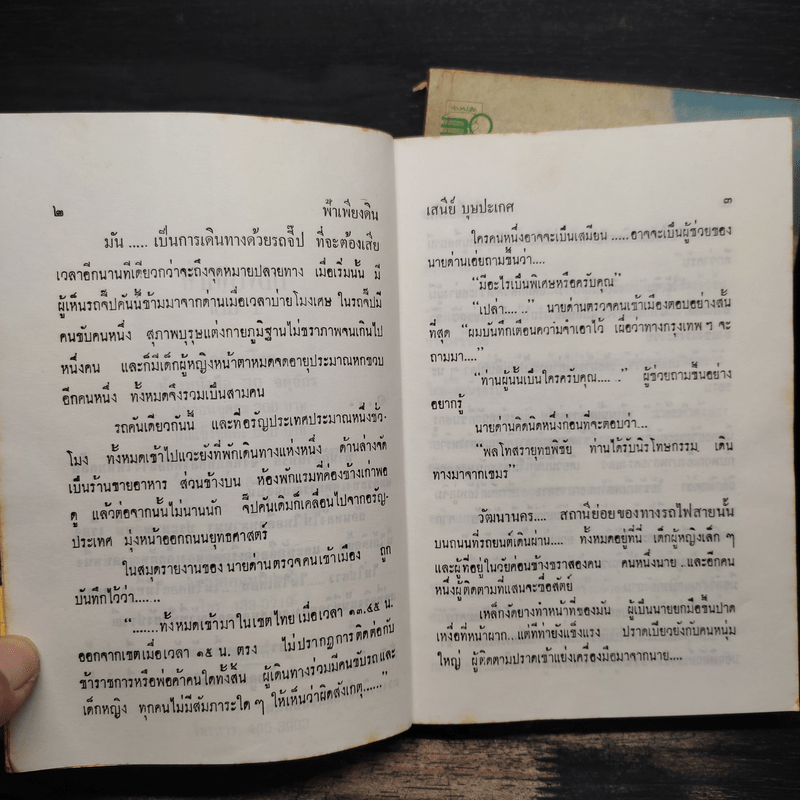 ๒
ฟ้าเพียงดิน
มัน ..... เป็นการเดินทางด้วยรถจี๊ป ที่จะต้องเสีย
เวลาอีกนานทีเดียวกว่าจะถึงจุดหมายปลายทาง เมื่อเริ่มนั้น มี
ผู้เห็นรถจี๊ปคันนี้ข้ามมาจากด่านเมื่อเวลาบ่ายโมงเศษ ในรถจี๊ปมี
คนขับคนหนึ่ง สุภาพบุรุษแต่งกายภูมิฐานไม่ชราภาพจนเกินไป
หนึ่งคน และก็มีเด็กผู้หญิงหน้าตาหมดจดอายุประมาณหกขวบ
อีกคนหนึ่ง ทั้งหมดจึงรวมเป็นสามคน
รถคันเดียวกันนี้ และที่อรัญประเทศประมาณหนึ่งชั่ว-
โมง ทั้งหมดเข้าไปแวะยังที่พักเดินทางแห่งหนึ่ง ด้านล่างจัด
เป็นร้านขายอาหาร ส่วนข้างบน ห้องพักแรมที่ค่องข้างเก่าพอ
ดู แล้วต่อจากนั้นไม่นานนัก จี๊ปคันเดิมก็เคลื่อนไปจากอรัญ-
ประเทศ มุ่งหน้าออกถนนยุทธศาสตร์
ในสมุดรายงานของ นายด่านตรวจคนเข้าเมือง ถูก
บันทึกไว้ว่า.......
“.......ทั้งหมดเข้ามาในเขตไทย เมื่อเวลา ๑๓.๔๕ น.
ออกจากเขตเมื่อเวลา ๑๕ น. ตรง ไม่ปรากฏการติดต่อกับ
ข้าราชการหรือพ่อค้าคนใดทั้งสิ้น ผู้เดินทางร่วมมีคนขับรถและ
เด็กหญิง ทุกคนไม่มีสัมภาระใด ๆ ให้เห็นว่าผิดสังเกตุ......”
เสนีย์ บุษปะเกศ
๓
ใครคนหนึ่งอาจจะเป็นเสมียน .....อาจจะเป็นผู้ช่วยของ
นายด่านเอ่ยถามขึ้นว่า....
“มีอะไรเป็นพิเศษหรือครับคุณ”
“เปล่า.... ..” นายด่านตรวจคนเข้าเมืองตอบอย่างสั้น
ที่สุด “ผมบันทึกเตือนความจำเอาไว้ เผื่อว่าทางกรุงเทพ ฯ จะ
ถามมา....”
“ท่านผู้นั้นเป็นใครครับคุณ.... ..” ผู้ช่วยถามขึ้นอย่าง
อยากรู้
นายด่านคิดนิดหนึ่งก่อนที่จะตอบว่า...
“พลโทสรายุทธพิชัย ท่านได้รับนิรโทษกรรม เดิน
ทางมาจากเขมร”
วัฒนานคร.... สถานีย่อยของทางรถไฟสายนั้น
บนถนนที่รถยนต์เดินผ่าน.... ทั้งหมดอยู่ที่นี่ เด็กผู้หญิงเล็ก ๆ
และผู้ที่อยู่ในวัยค่อนข้างชราสองคน คนหนึ่งนาย และอีกคน
หนึ่งผู้ติดตามที่แสนจะซื่อสัตย์
เหล็กงัดยางทำหน้าที่ของมัน ผู้เป็นนายยกมือขึ้นปาด
เหงื่อที่หน้าผาก...แต่ที่ท่ายังแข็งแรง ปราดเปรียวยังกับคนหนุ่ม
ใหญ่ ผู้ติดตามปราดเข้าแย่งเครื่องมือมาจากนาย....